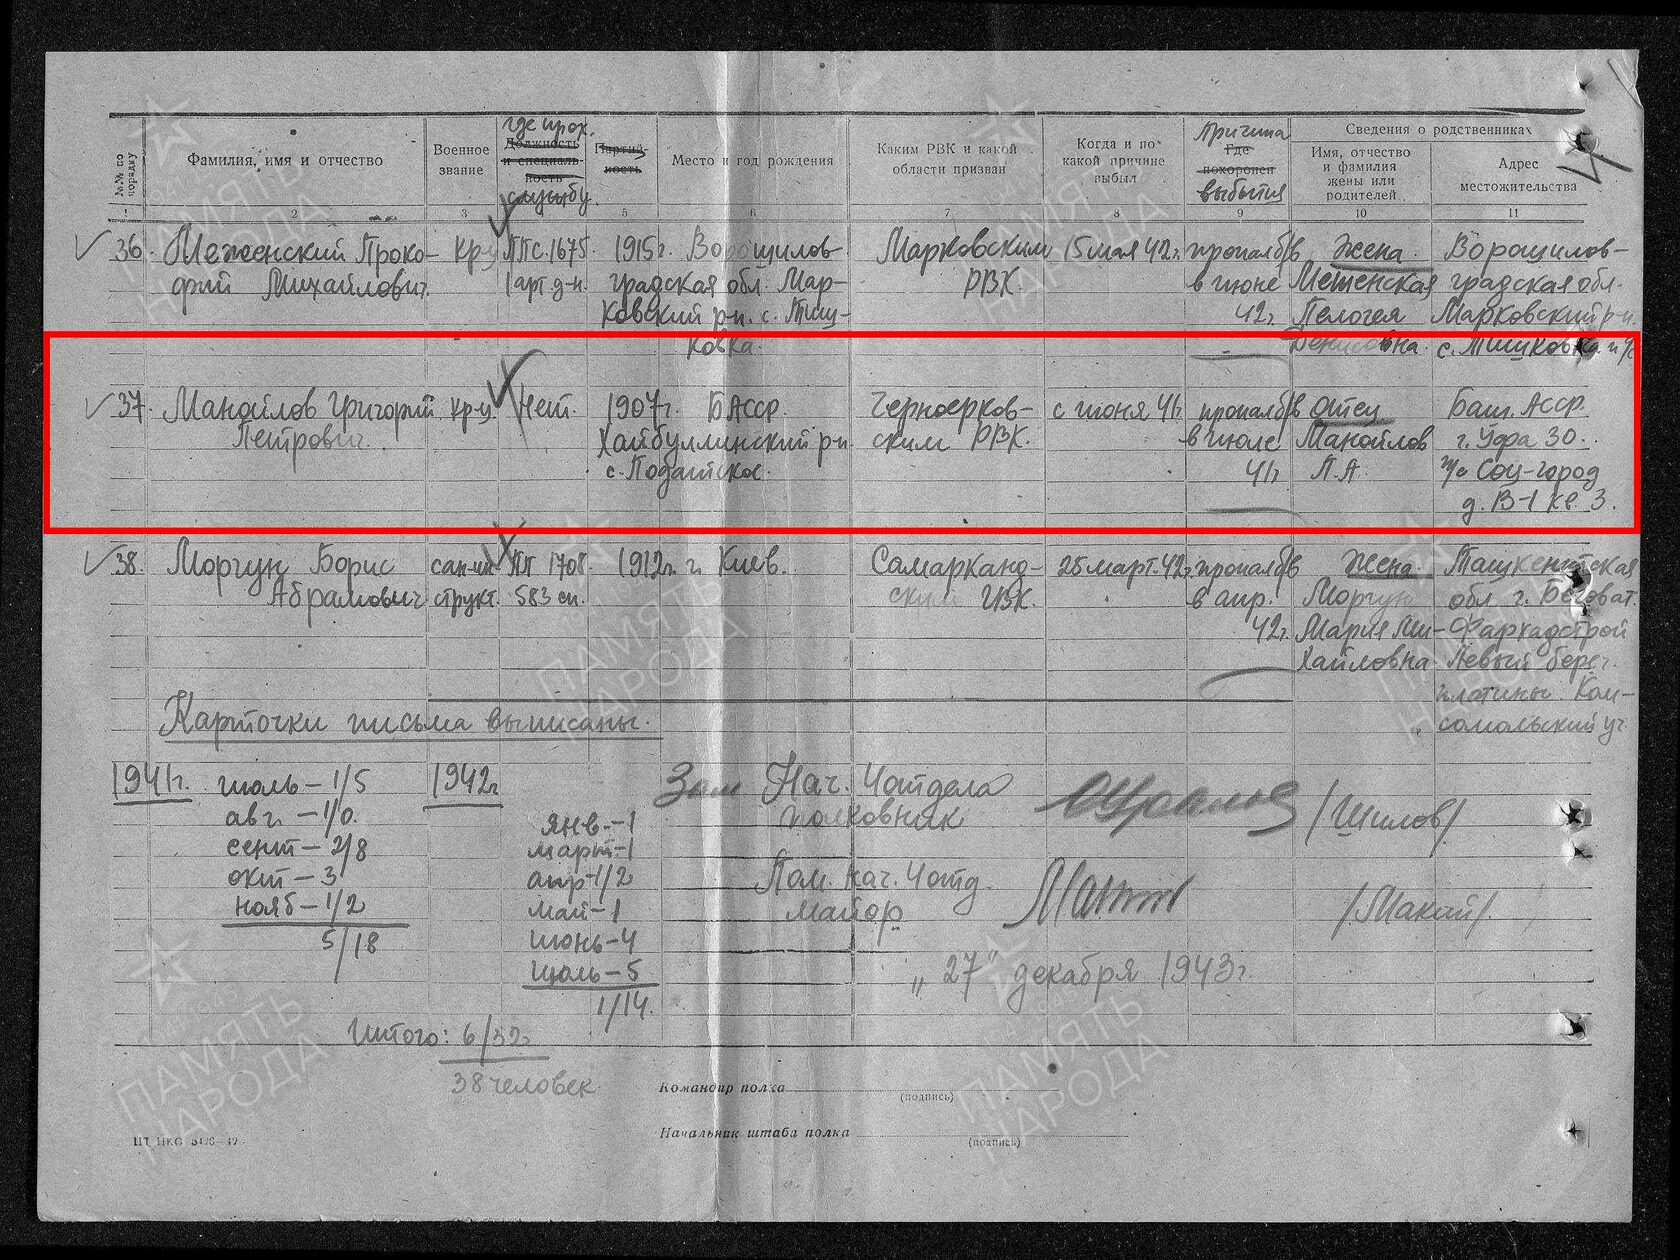 №№ по порядку
Фамилия, имя и отчество
Военное звание
где прох. службу
Должность и специальность
Партийность
Место и год рождения
Каким РВК и какой области призван
Когда и по какой причине выбыл
Причина выбытия
Где похоронен
Сведения о родственниках
Имя, отчество и фамилия жены или родителей
Адрес местожительства
1 2 3 5 6 7 8 9 10 11
36. Меженский Проко- кр-ц ППС.1675. 1915г. Ворошилов- Марковским 15 мая 42г. пропал б/в Жена Ворошилов-
фий Михайлович. 1 арт д-н. градская обл. Мар- РВК. в июне Меженская градская обл.
ковский р-н. с. Тиш- 42г. Пелогея Марковский р-н.
ковка. Денисовна. с.
37. Манойлов Григорий кр-ц Нет. 1907г. БАССР. Черноерков- с июня 41г. пропал б/в Отец Баш. АССР.
Петрович. Хайбуллинский р-н. ским РВК. в июле Манойлов г. Уфа 30.
с. Податское. 41г. П.А. п/о Соц-город
д. В-1 кв. 3.
38. Моргун Борис сан-ин ПП 1708. 1912г. г. Киев. Самарканд- 25 март. 42г. пропал б/в Жена. Ташкентская
Абрамович структ. 583 сп. ским ГВК. в апр. Моргун обл. г. Беговат.
42г. Мария Ми- Фархадстрой
хайловна Левый берег.
плотины. Ком-
сомольский уч.
Карточки письма выписаны.
1941г. июль – 1/5 1942г. Зам Нач. 4 отдела
авг. – 1/0. янв. – 1 полковник /Шилов/
сент – 2/8 март. – 1
окт – 3 апр – 1/2 Пом. нач. 4 отд.
нояб – 1/2 май – 1 майор /Макай/.
5/18 июнь – 4
июль – 5 „27" декабря 1943г
1/14.
Итого: 6/32
38 человек.
Командир полка
(подпись)
Начальник штаба полка
(подпись)
ПАМЯТЬ НАРОДА
1941-1945